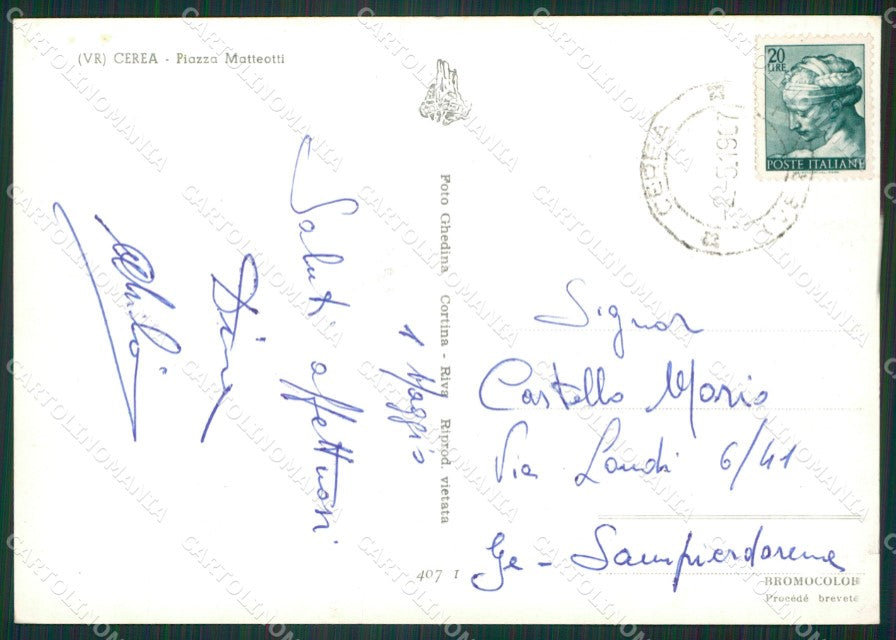 (VR) CEREA - Piazza Matteotti
20
LIRE
POSTE ITALIANE
CEREA
1 Maggio
Saluti affettuosi
Foto Ghedina Cortina - Riva Riprod. vietata
Signor
Castello Mario
Via Landi 6/41
Ge - Sampierdarena
407 I
BROMOCOLOR
Procédé breveté
CARTOLINOMANIA